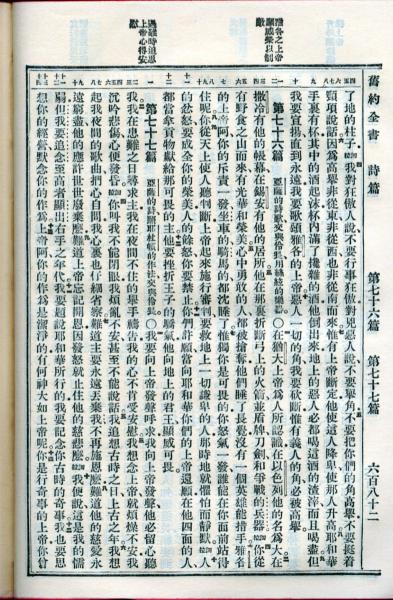 舊約全書 詩篇 第七十六篇 第七十七篇 六百八十二
了地的柱子細拉我對狂傲人說不要行事狂傲對兇惡人說不要舉角不要把你們的角高舉不要挺着
頸項說話因爲高舉非從東非從西也非從南而來惟有上帝斷定他使這人降卑使那人升高耶和華
手裏有杯其中的酒起沫杯內滿了攙雜的酒他倒出來地上的惡人必都喝這酒的渣滓而且喝盡但
我要宣揚直到永遠我要歌頌雅各的上帝惡人一切的角我要砍斷惟有義人的角必被高舉
第七十六篇 亞薩的詩歌交與伶長用絲絃的樂器 ○在猶大上帝爲人所認識在以色列他的名爲大在
撒冷有他的帳幕在錫安有他的居所他在那裏折斷弓上的火箭並盾牌刀劍和爭戰的兵器細拉你從
有野食之山而來有光華和榮美心中勇敢的人都被搶奪他們睡了長覺沒有一個英雄能措手雅各
的上帝阿你的斥責一發坐車的騎馬的都沈睡了惟獨你是可畏的你怒氣一發誰能在你面前站得
住呢你從天上使人聽判斷上帝起來施行審判要救地上一切謙卑的人那時地就懼怕而靜默細拉人
的忿怒要成全你的榮美人的餘怒你要禁止你們許願當向耶和華你們的上帝還願在他四面的人
都當拿貢物獻給那可畏的主他要挫折王子的驕氣他向地上的君王顯威可畏
第七十七篇 亞薩的詩照耶杜頓的作法交與伶長 ○我要向上帝發聲呼求我向上帝發聲他必留心聽
我我在患難之日尋求主我在夜間不住的舉手禱告我的心不肯受安慰我想念上帝就煩燥不安我
沉吟悲傷心便發昏細拉你叫我不能閉眼我煩亂不安甚至不能說話我追想古時之日上古之年我想
起我夜間的歌曲捫心自問我心裏也仔細省察難道主要永遠丟棄我不再施恩麼難道他的慈愛永
遠窮盡他的應許世世廢棄麼難道上帝忘記開恩因發怒就止住他的慈悲麼細拉我便說這是我的懦
弱但我要追念至高者顯出右手之年代我要題說耶和華所行的我要記念你古時的奇事我也要思
想你的經營默念你的作爲上帝阿你的作爲是潔淨的有何神大如上帝呢你是行奇事的上帝你曾